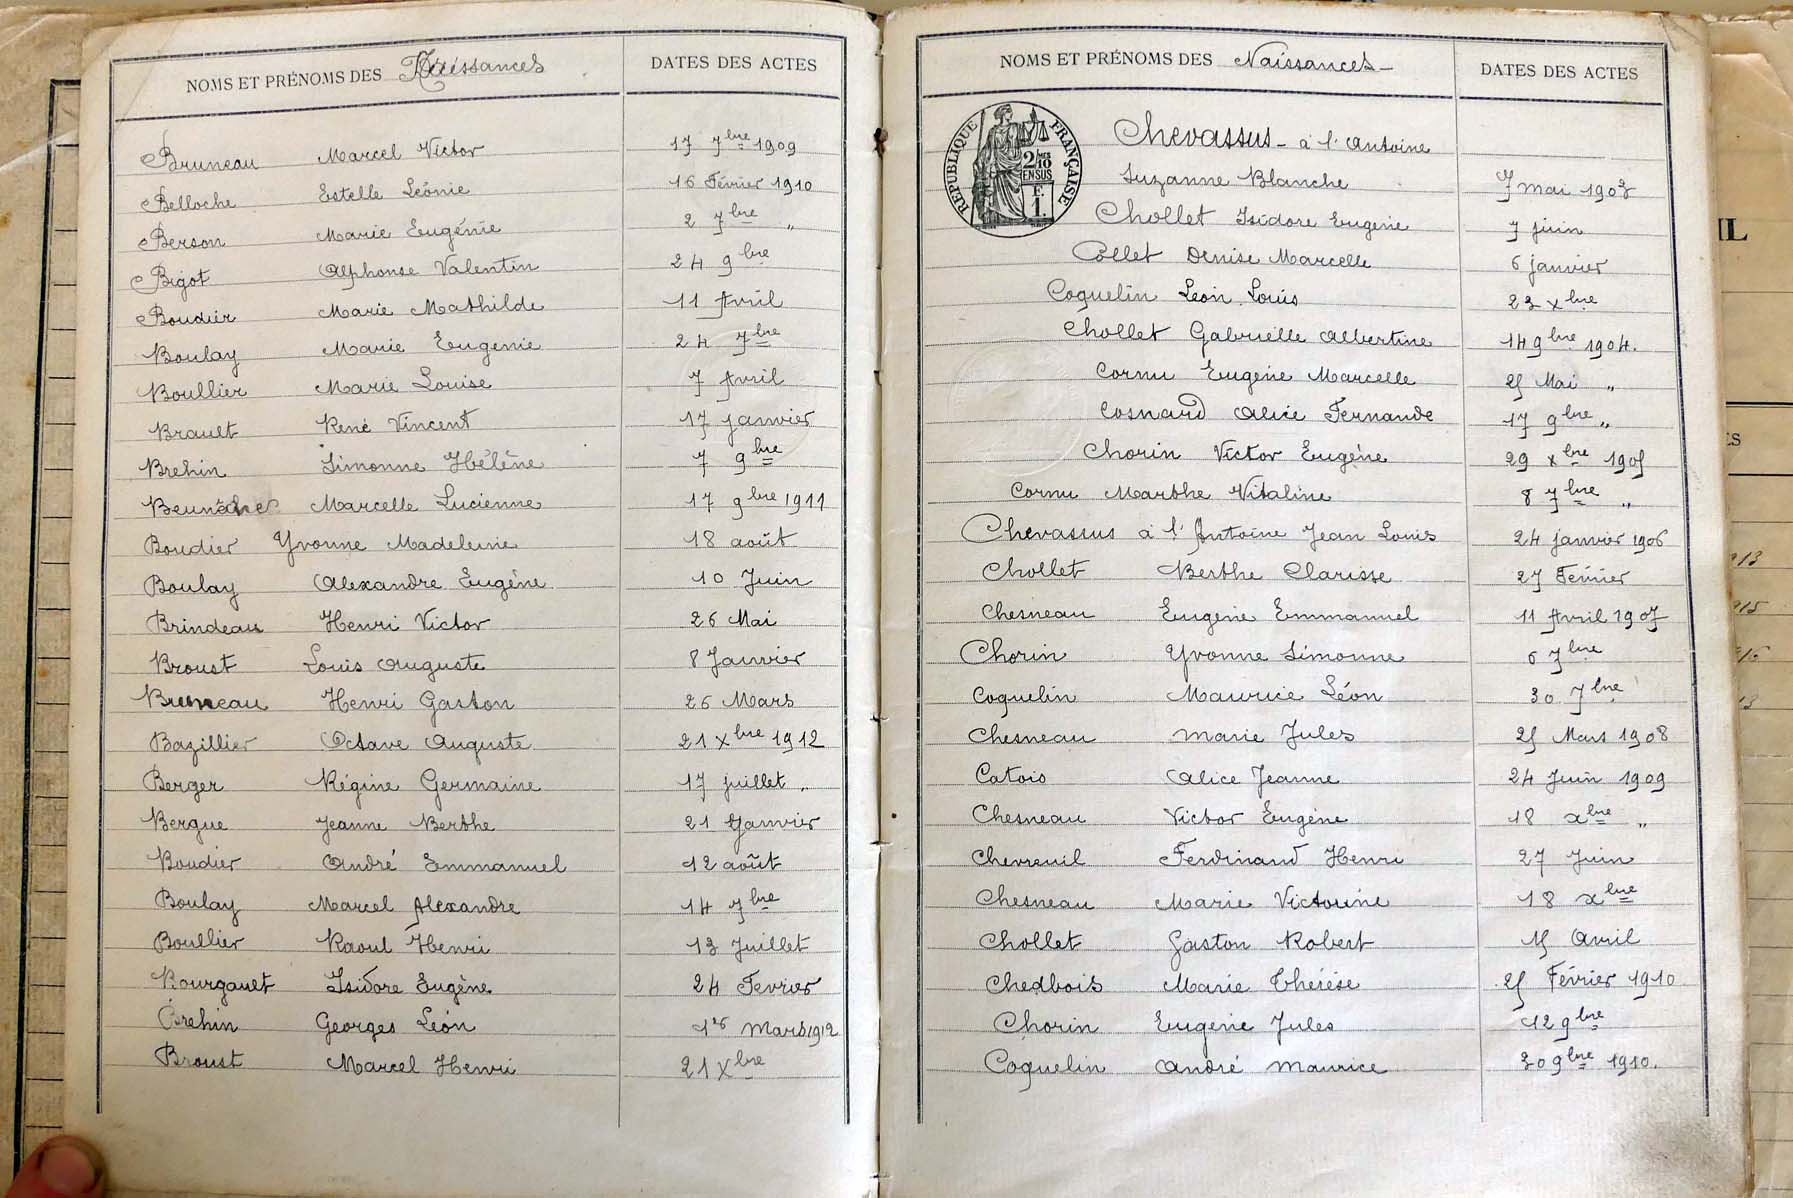 NOMS ET PRÉNOMS DES Naissances DATES DES ACTES
Bruneau Marcel Victor 17 7bre 1909
Belloche Estelle Léonie 16 Février 1910
Berson Marie Eugénie 2 7bre "
Bigot Alphonse Valentin 24 9bre
Boudier Marie Mathilde 11 Avril
Boulay Marie Eugenie 24 7bre
Boullier Marie Louise 7 Avril
Brault René Vincent 17 janvier
Brehin Simonne Hélène 7 9bre
Marcelle Lucienne 17 9bre 1911
Boudier Yvonne Madeleine 18 août
Boulay Alexandre Eugène 10 Juin
Brindeau Henri Victor 26 Mai
Broust Louis Auguste 8 Janvier
Bruneau Henri Gaston 26 Mars
Bazillier Octave Auguste 21 Xbre 1912
Berger Régine Germaine 17 juillet "
Bergue Jeanne Berthe 21 Janvier
Boudier André Emmanuel 12 août
Boulay Marcel Alexandre 14 7bre
Boullier Raoul Henri 13 Juillet
Bourgault Isidore Eugène 24 Fevrier
Brehin Georges Léon 1er Mars 1912
Broust Marcel Henri 21 Xbre
NOMS ET PRÉNOMS DES Naissances - DATES DES ACTES
RÉPUBLIQUE FRANÇAISE
2/10
EN SUS
F.
1.
Chevassus - à l'Antoine
Suzanne Blanche 7 mai 1903
Chollet Isidore Eugène 7 juin
Collet Denise Marcelle 6 janvier
Coquelin Leon Louis 23 Xbre
Chollet Gabrielle Albertine 14 9bre 1904.
Cornu Eugène Marcelle 25 Mai "
Cosnard Alice Fernande 17 9bre "
Chorin Victor Eugène 29 Xbre 1905
Cornu Marthe Vitaline 8 7bre "
Chevassus à l'Antoine Jean Louis 24 janvier 1906
Chollet Berthe Clarisse 27 Fevrier
Chesneau Eugène Emmanuel 11 Avril 1907
Chorin Yvonne Simonne 6 7bre
Coquelin Maurice Léon 30 7bre
Chesneau Marie Jules 25 Mars 1908
Catois Alice Jeanne 24 Juin 1909
Chesneau Victor Eugène 18 xbre "
Chevreuil Ferdinand Henri 27 Juin
Chesneau Marie Victorine 18 xbre
Chollet Gaston Robert 15 Avril
Chedbois Marie Thérèse 25 Février 1910
Chorin Eugène Jules 12 9bre
Coquelin André Maurice 30 9bre 1910.